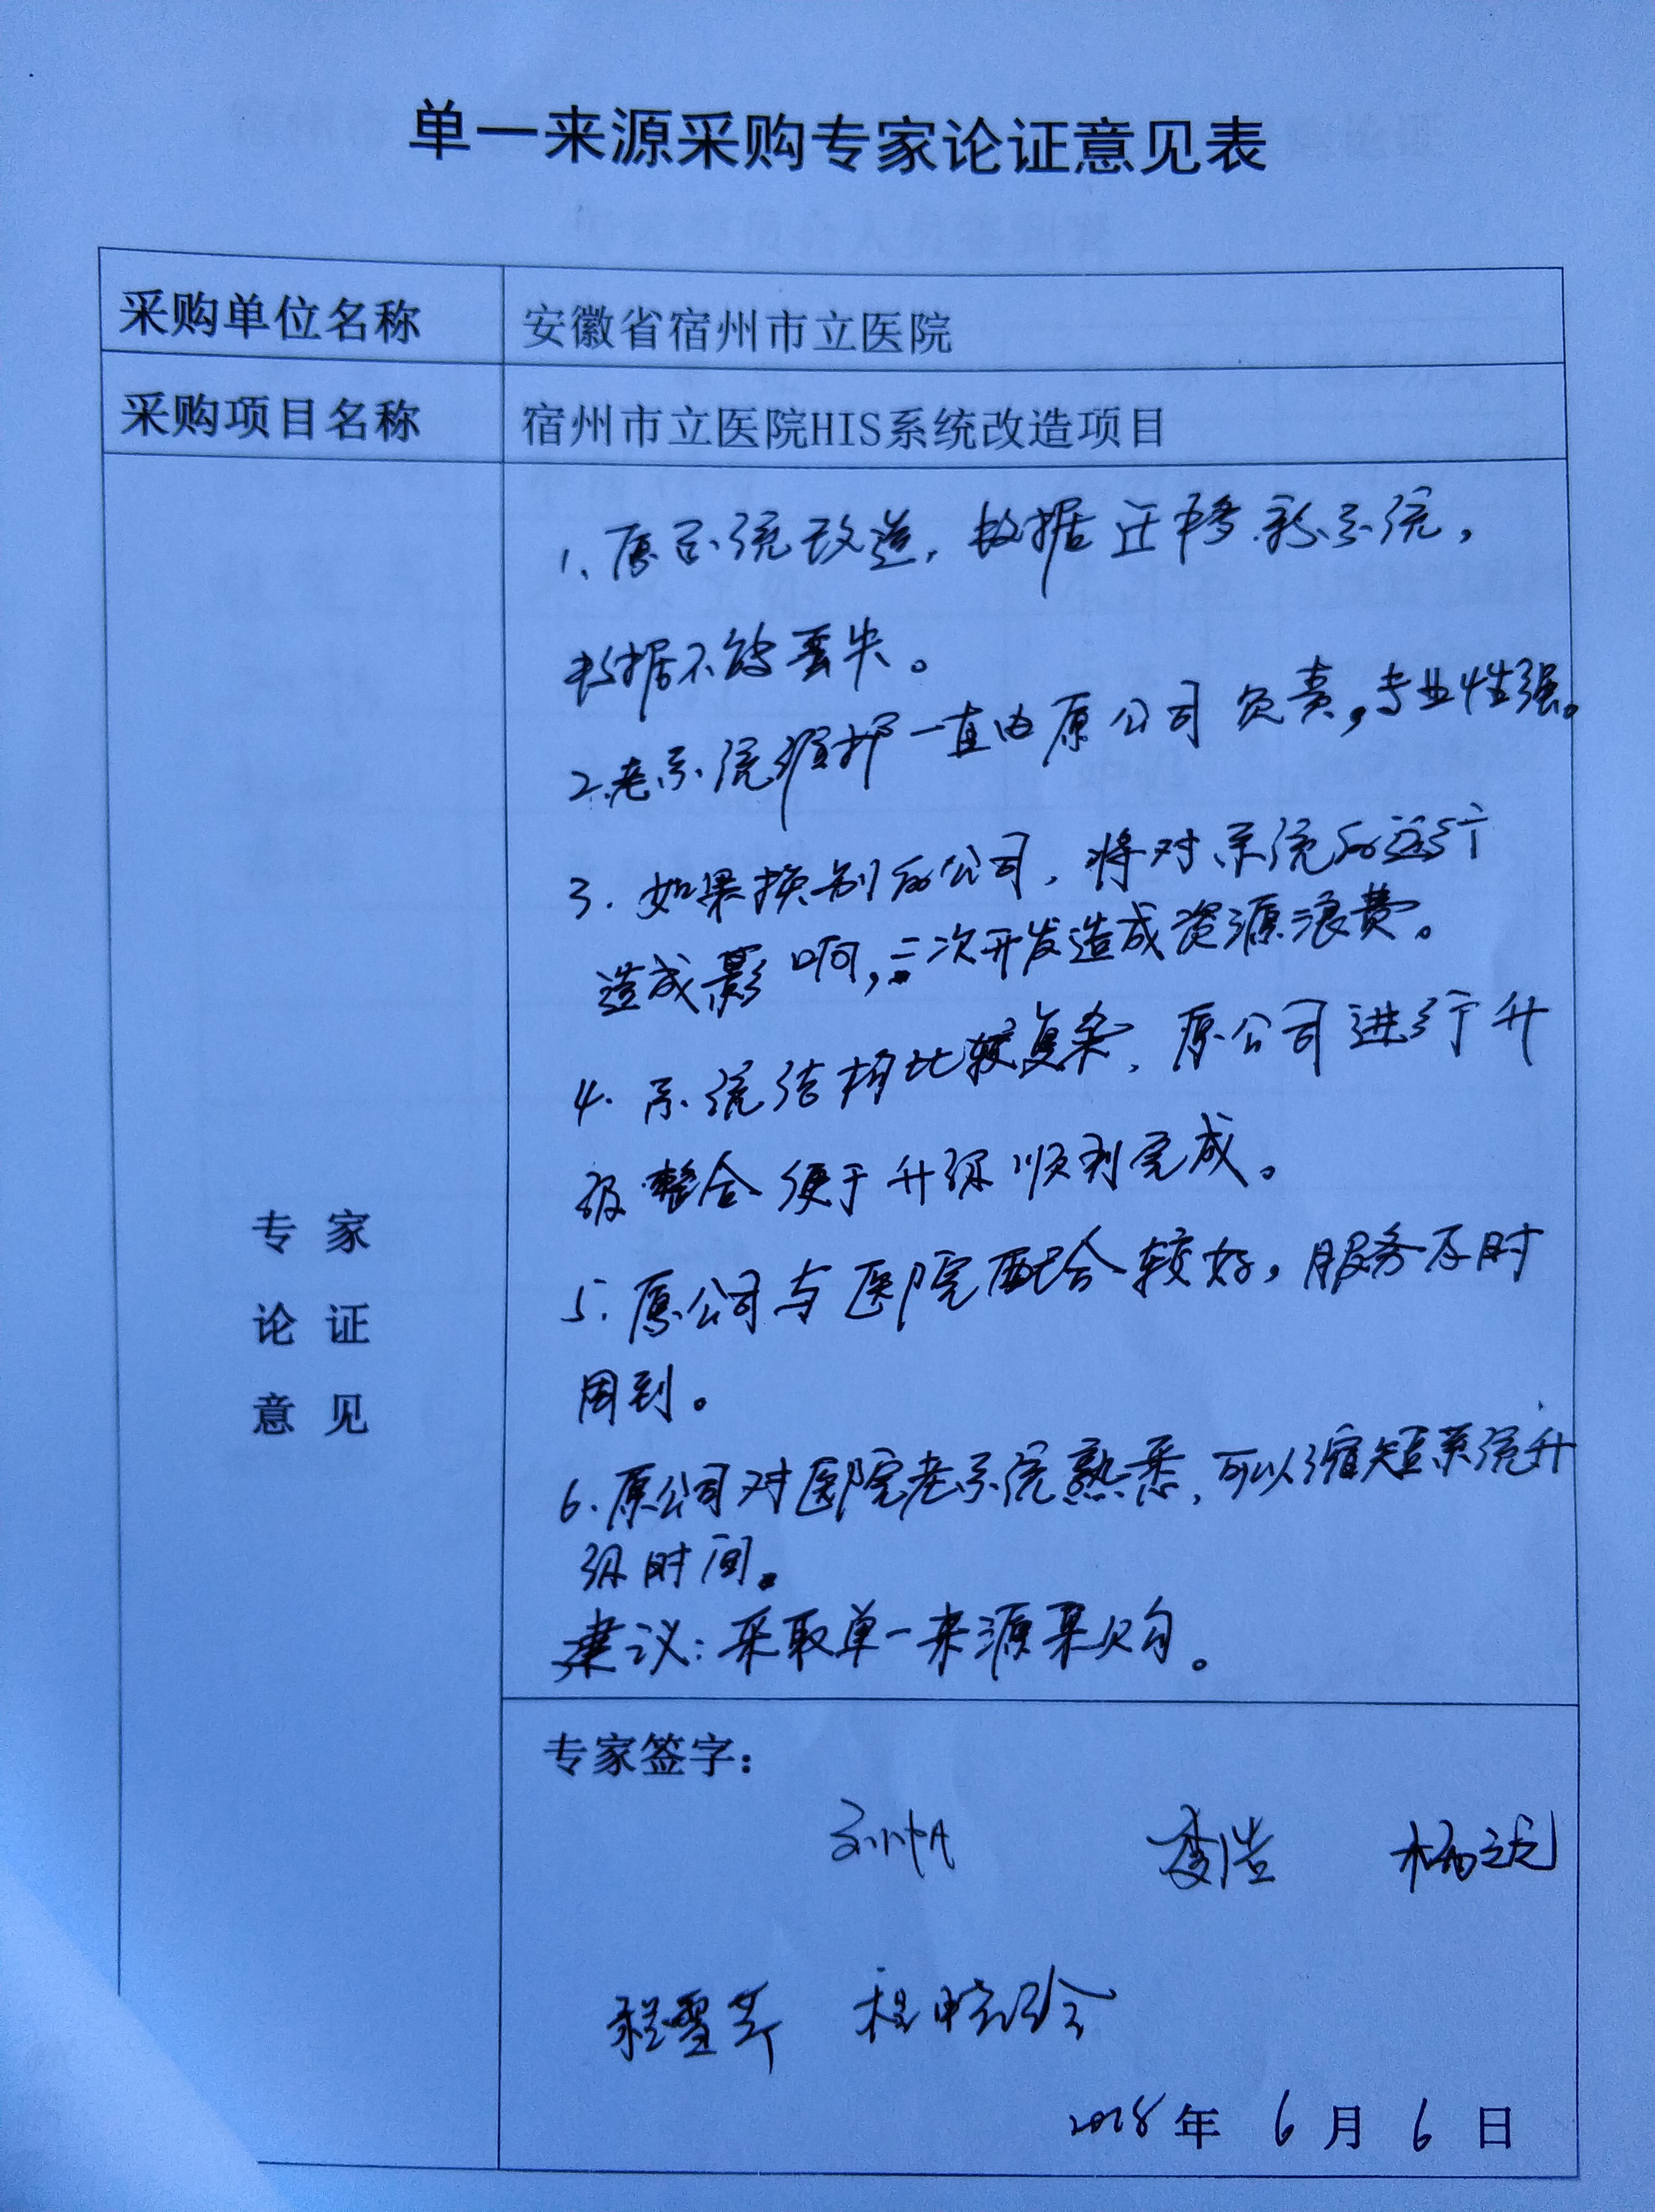 单一来源采购专家论证意见表
采购单位名称 安徽省宿州市立医院
采购项目名称 宿州市立医院HIS系统改造项目
专家
论证
意见
1、原系统改造，数据迁移新系统，
数据不能丢失。
2.老系统维护一直由原公司负责，专业性强。
3.如果换别的公司，将对系统的运行
造成影响，二次开发造成资源浪费。
4.系统结构比较复杂，原公司进行升
级整合便于升级顺利完成。
5.原公司与医院配合较好，服务及时
周到。
6.原公司对医院老系统熟悉，可以缩短系统升
级时间。
建议：采取单一来源采购。
专家签字：
李浩
程雪芹 程晓玲
2018年 6月 6日